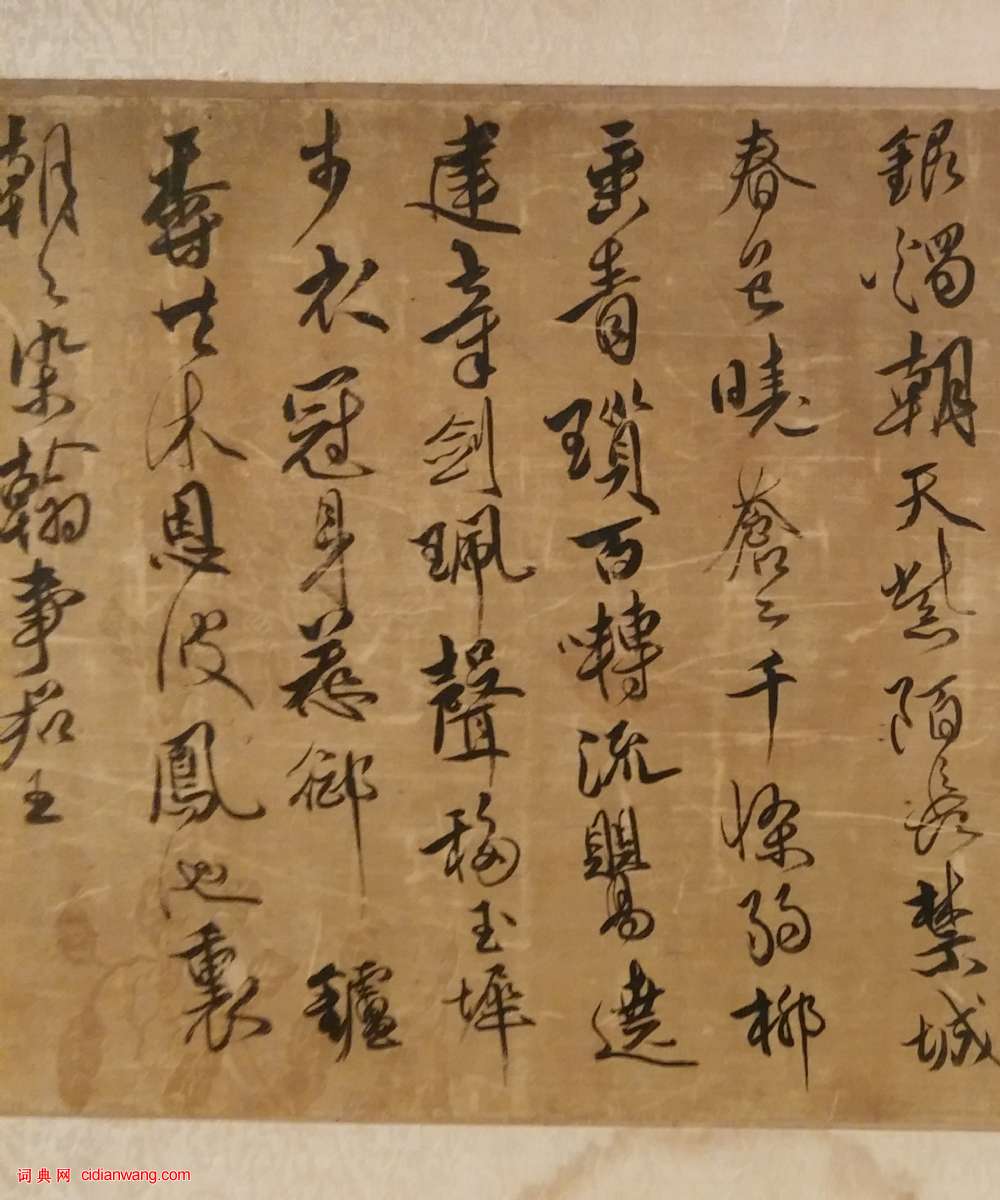 銀燭朝天紫陌長禁城
春色曉蒼〻千條弱柳
垂青瑣百囀流鸎遶
建章劍珮聲移玉墀
步衣冠身惹御鑪
香共沐恩波鳳池裏
朝〻染翰事君王
词典网 cidianwang.com